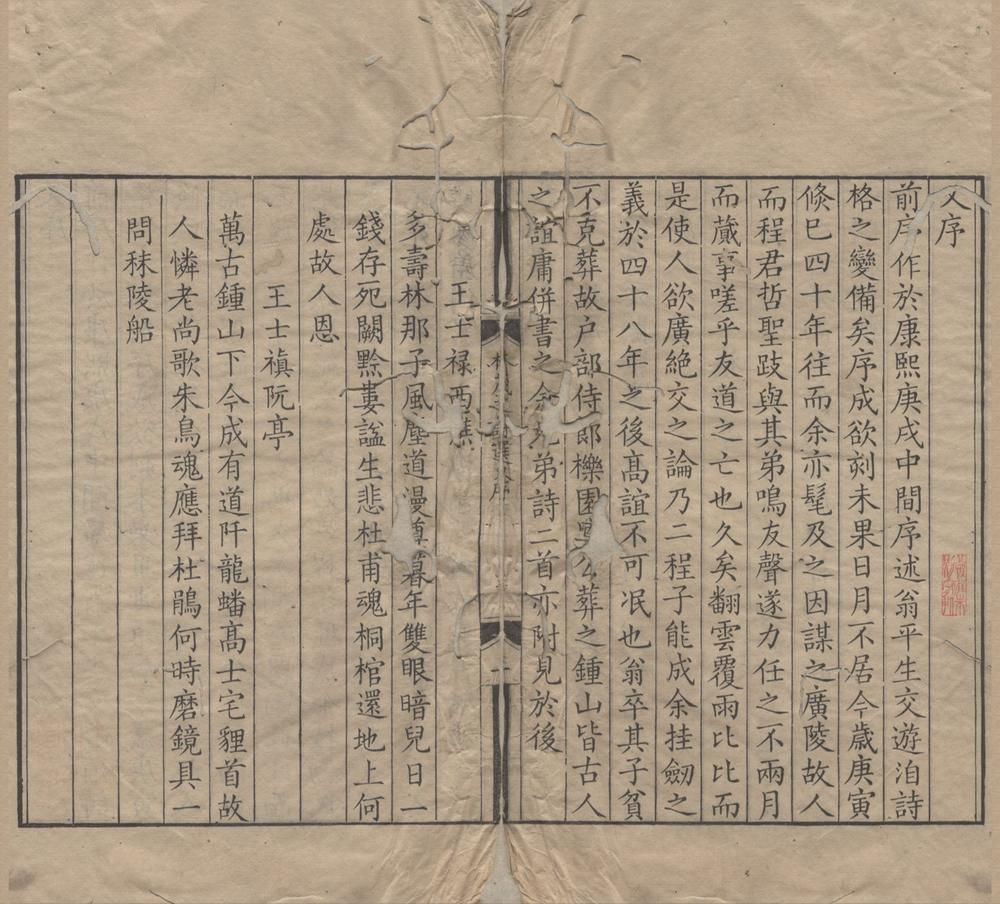 又序
前序作於康熙庚戌中間序述翁平生交遊洎詩
格之變備矣序成欲刻未果日月不居今歳庚寅
倐已四十年往而余亦髦及之因謀之廣陵故人
而程君哲聖跂與其弟鳴友聲遂力任之不兩月
而蕆事嗟乎友道之亡也久矣翻雲覆雨比比而
是使人欲廣絶交之論乃二程子能成余挂劒之
義於四十八年之後髙誼不可冺也翁卒其子貧
不克葬故户部侍郎櫟園公葬之鍾山皆古人
之誼庸併書之余兄弟詩二首亦附見於後
林茂之詩選又序
一
王士禄西樵
多壽林那子風塵道漫尊暮年雙眼暗兒日一
錢存死闕黔婁諡生悲杜甫魂桐棺還地上何
處故人恩
王士禛阮亭
萬古鍾山下今成有道阡龍蟠髙士宅貍首故
人憐老尚歌朱鳥魂應拜杜鵑何時磨鏡具一
問秣陵船